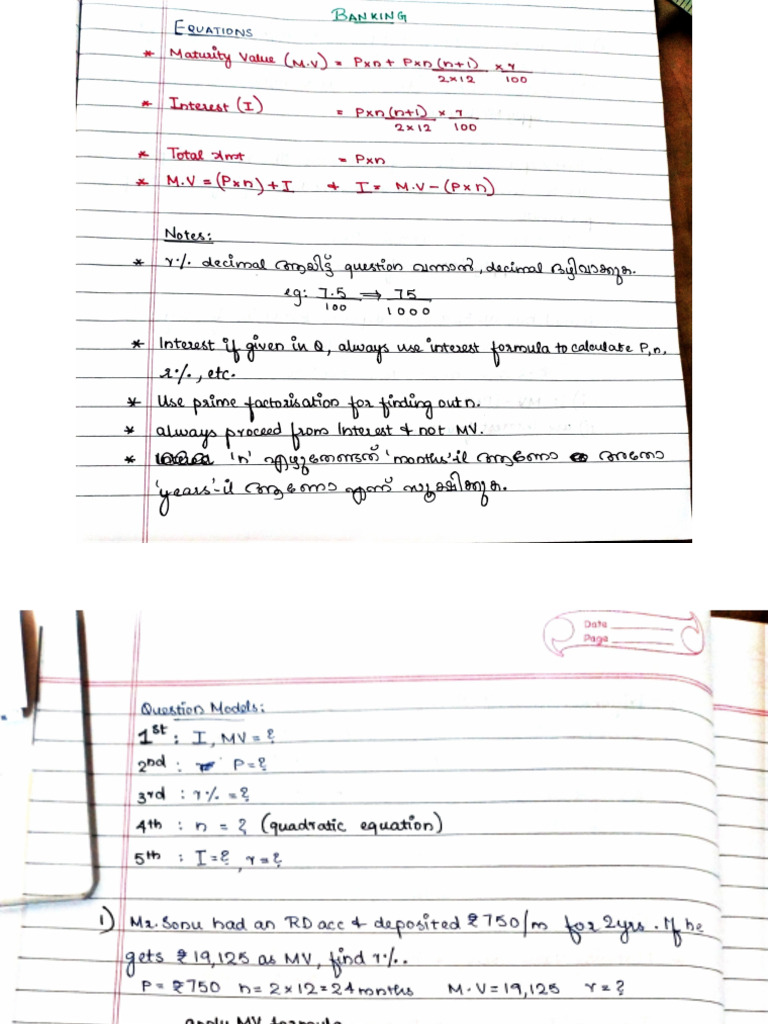 BANKING
EQUATIONS
* Maturity Value (M.V) = P×n + P×n(n+1)/2×12 × r/100
* Interest (I) = P×n(n+1)/2×12 × r/100
* Total Amt = P×n
* M.V = (P×n) + I & I = M.V - (P×n)
Notes:
* r% decimal ആയിട്ട് question വന്നാൽ, decimal ഒഴിവാക്കുക.
eg: 7.5/100 ⇒ 75/1000
* Interest if given in Q, always use interest formula to calculate P, n,
r%, etc.
* Use prime factorisation for finding out n.
* always proceed from Interest & not MV.
* 'n' എഴുതേണ്ടത് 'months'-il ആണോ അതോ
'years'-il ആണോ എന്ന് സൂക്ഷിക്കുക.
Date
Page
Question Models:
1st : I, MV = ?
2nd : P = ?
3rd : r% = ?
4th : n = ? (quadratic equation)
5th : I = ?, r = ?
1) Mr. Sonu had an RD acc & deposited ₹750/m for 2yrs. If he
gets ₹19,125 as MV, find r%.
P = ₹750 n = 2×12 = 24 months M.V = 19,125 r = ?
apply MV formula